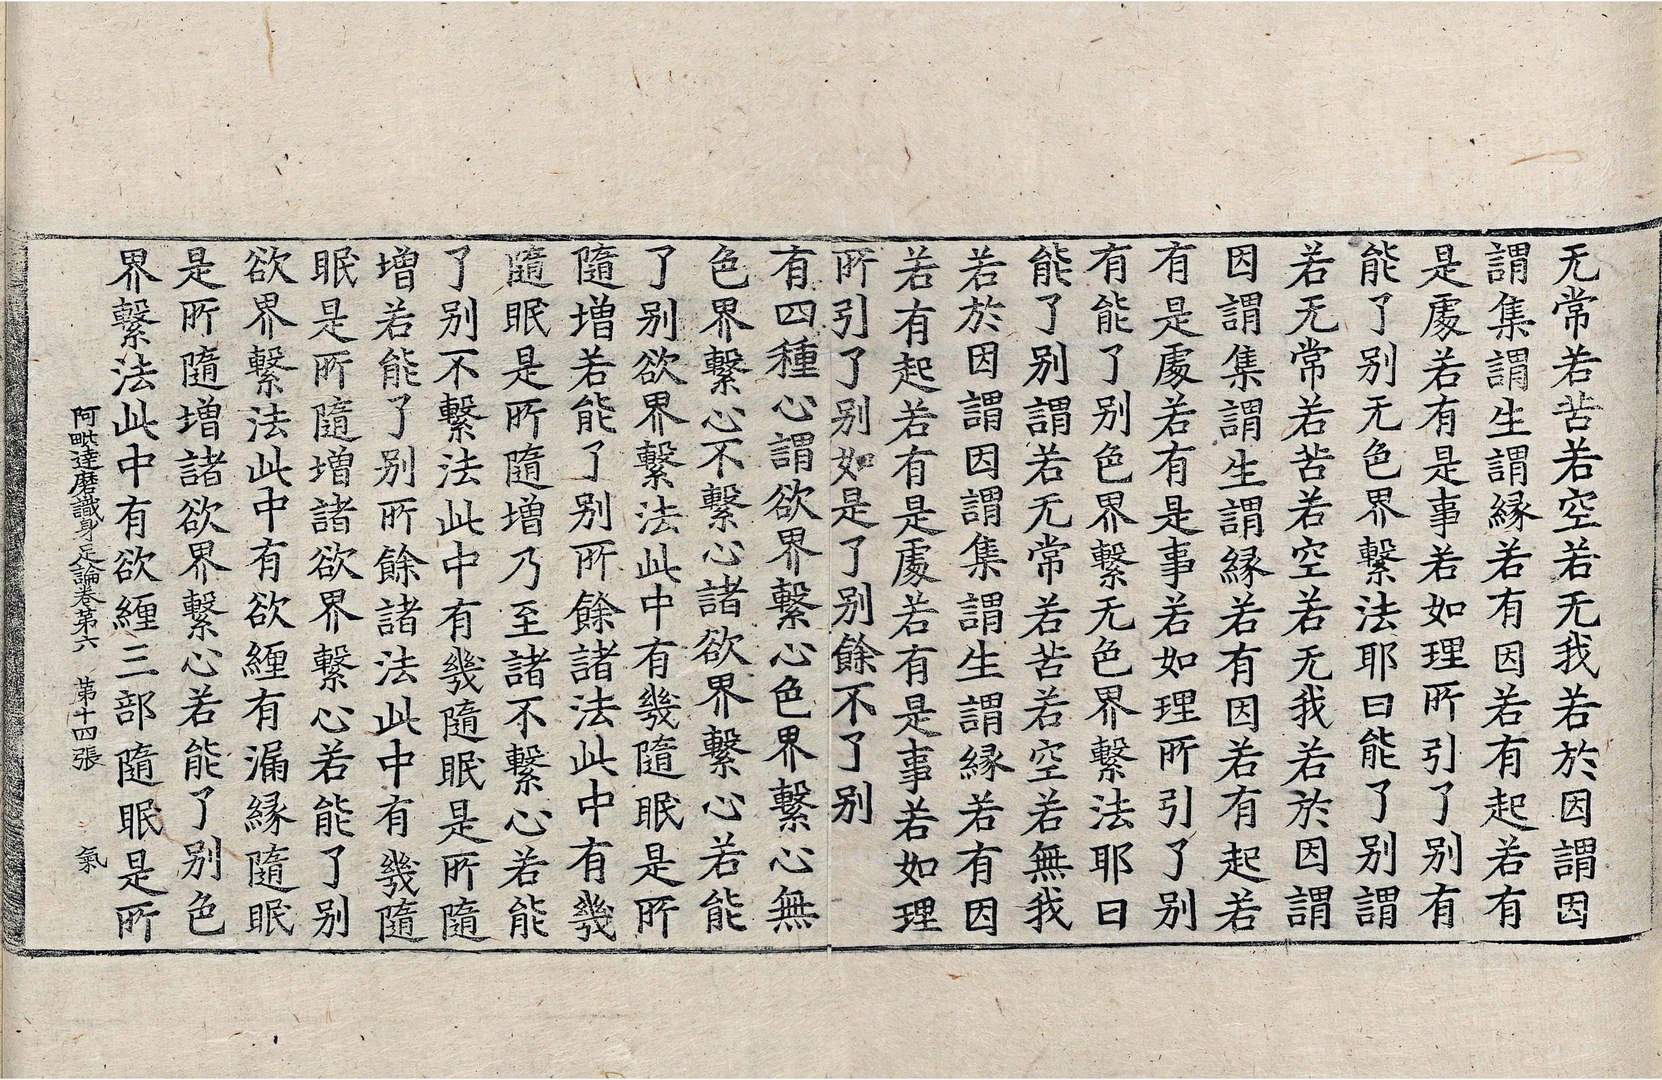 无常若苦若空若无我若於因謂因
謂集謂生謂緣若有因若有起若有
是處若有是事若如理所引了別有
能了別无色界繫法耶曰能了別謂
若无常若苦若空若无我若於因謂
因謂集謂生謂緣若有因若有起若
有是處若有是事若如理所引了別
有能了別色界繫无色界繫法耶曰
能了別謂若无常若苦若空若無我
若於因謂因謂集謂生謂緣若有因
若有起若有是處若有是事若如理
所引了別如是了別餘不了別
有四種心謂欲界繫心色界繫心無
色界繫心不繫心諸欲界繫心若能
了別欲界繫法此中有幾隨眠是所
隨增若能了別所餘諸法此中有幾
隨眠是所隨增乃至諸不繫心若能
了別不繫法此中有幾隨眠是所隨
增若能了別所餘諸法此中有幾隨
眠是所隨增諸欲界繫心若能了別
欲界繫法此中有欲纏有漏緣隨眠
是所隨增諸欲界繫心若能了別色
界繫法此中有欲纏三部隨眠是所
阿毗達磨識身足論卷第六 第十四張 氣